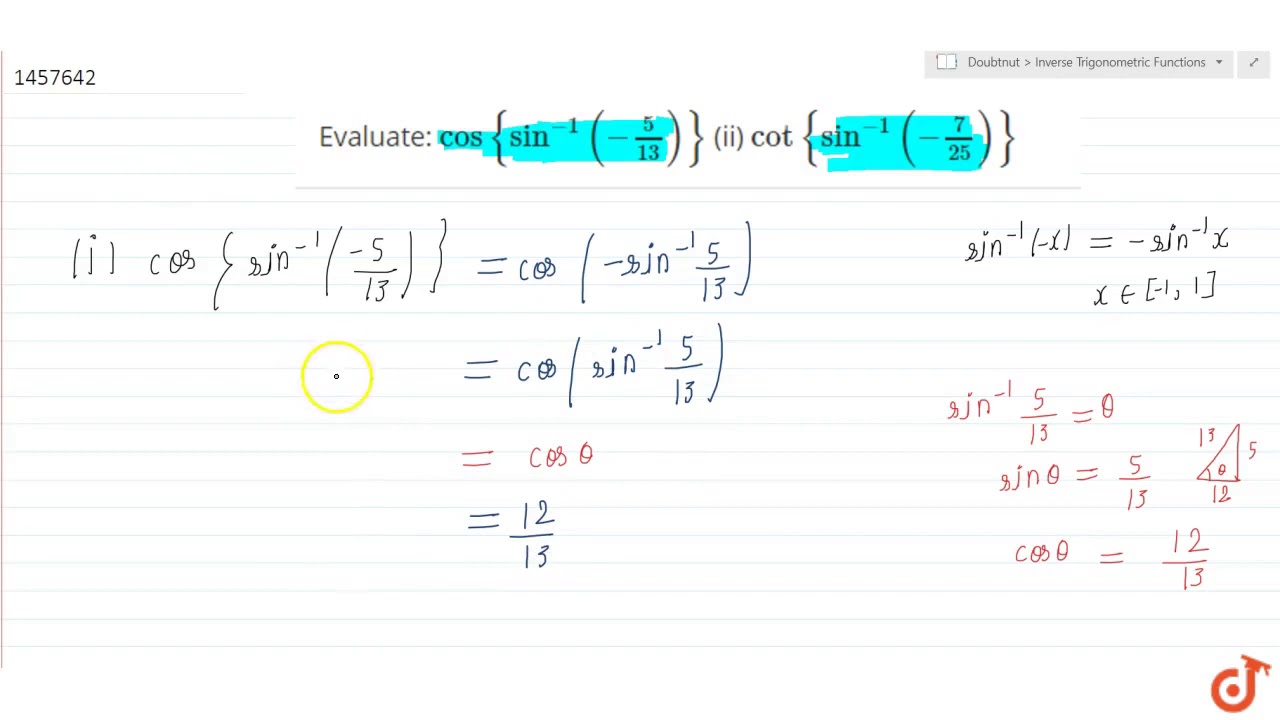 1457642
Doubtnut > Inverse Trigonometric Functions
Evaluate: cos {sin⁻¹ (−5/13)} (ii) cot {sin⁻¹ (−7/25)}
(i) cos {sin⁻¹ (−5/13)} = cos (−sin⁻¹ 5/13)
sin⁻¹(−x) = −sin⁻¹x
x ∈ [−1, 1]
= cos (sin⁻¹ 5/13)
= cos θ
= 12/13
sin⁻¹ 5/13 = θ
sin θ = 5/13
13 5
θ
12
cos θ = 12/13